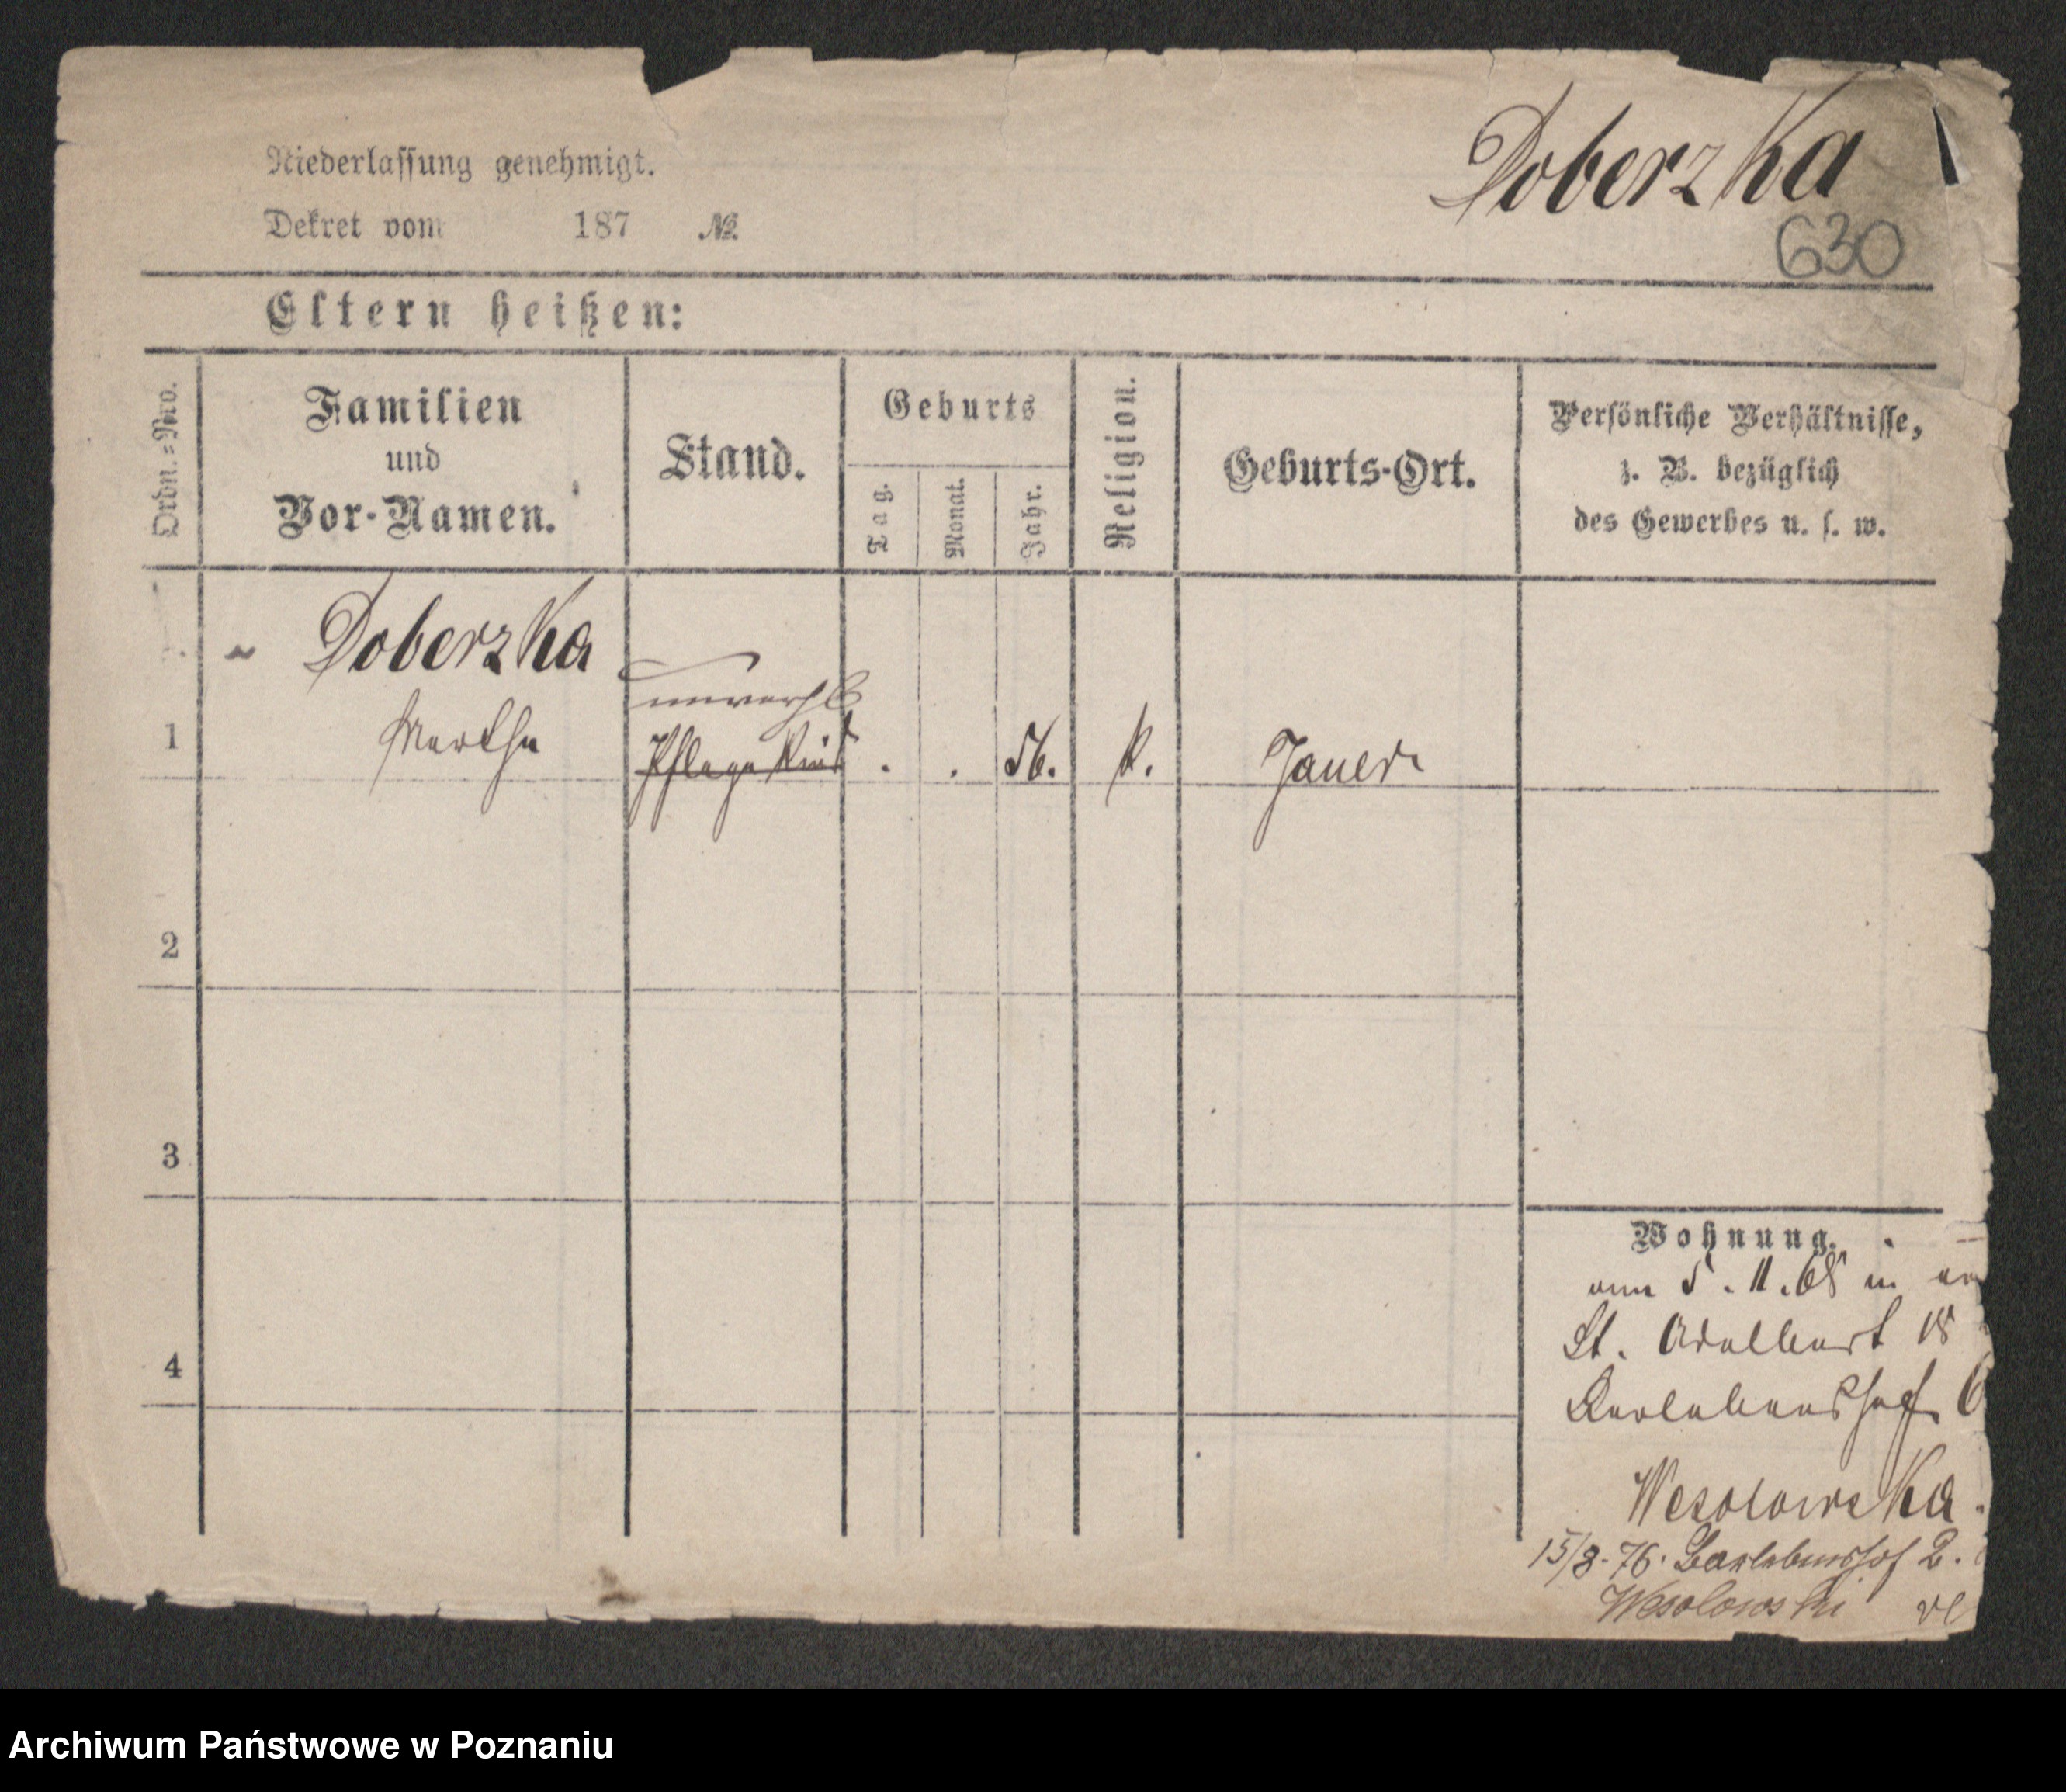 Niederlassung genehmigt.
Doberzka
Dekret vom 187 №
630
Eltern heißen:
Ordn.=Nro.
Familien
und
Vor-Namen.
Stand.
Geburts
Tag.
Monat.
Jahr.
Religion.
Geburts-Ort.
Persönliche Verhältnisse,
z. B. bezüglich
des Gewerbes u. s. w.
Doberzka
unverh
1 Martha Pflege Kind . . 56. k. Jauer
2
3
4
Wohnung.
5. 11. 68
St. Adalbert 18
Barlebenshof 6
Wesolowska.
15/8. 76. Barlebenshof 2.
Wesolowski
Archiwum Państwowe w Poznaniu